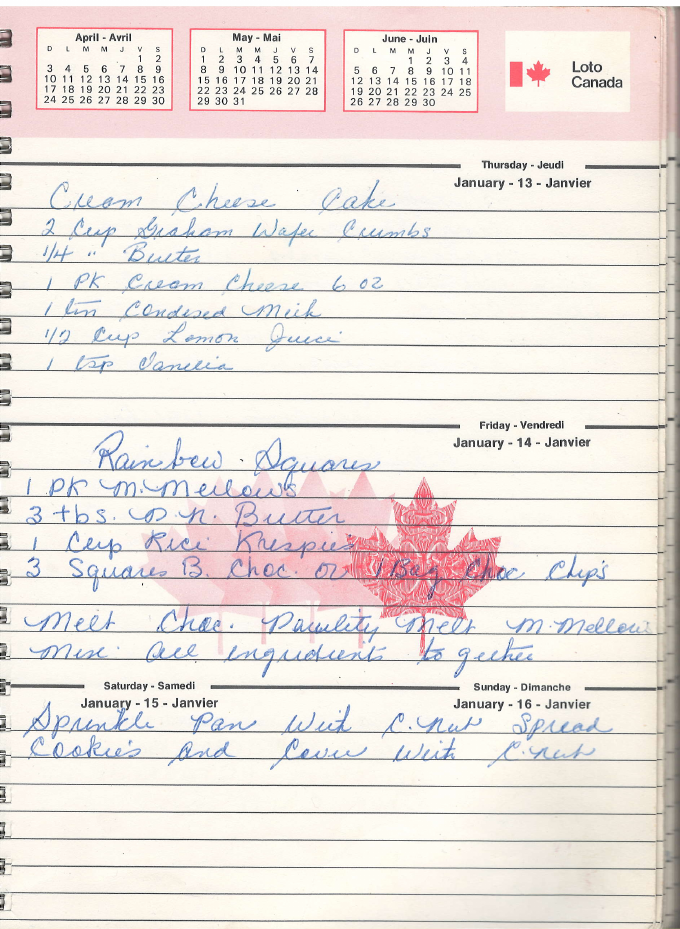 April - Avril
D L M M J V S
1 2
3 4 5 6 7 8 9
10 11 12 13 14 15 16
17 18 19 20 21 22 23
24 25 26 27 28 29 30
May - Mai
D L M M J V S
1 2 3 4 5 6 7
8 9 10 11 12 13 14
15 16 17 18 19 20 21
22 23 24 25 26 27 28
29 30 31
June - Juin
D L M M J V S
1 2 3 4
5 6 7 8 9 10 11
12 13 14 15 16 17 18
19 20 21 22 23 24 25
26 27 28 29 30
Loto
Canada
Thursday - Jeudi
January - 13 - Janvier
Cream Cheese Cake
2 Cup Graham Wafer Crumbs
1/4 " Butter
1 PK Cream Cheese 6 oz
1 tin Condised Milk
1/2 Cup Lemon Juice
1 tsp Vanilia
Friday - Vendredi
January - 14 - Janvier
Rainbow Squares
1 PK M. Mellows
3 tbs. P. N. Butter
1 Cup Rice Krispies
3 Squares B. Choc. or 1 Bag Choc Chip's
Melt Choc. Melt M. Mellows
Mix all ingridients to gether
Saturday - Samedi
January - 15 - Janvier
Sunday - Dimanche
January - 16 - Janvier
Sprinkle Pan With C. nut Spread
Cookie's and Cover With C. nut